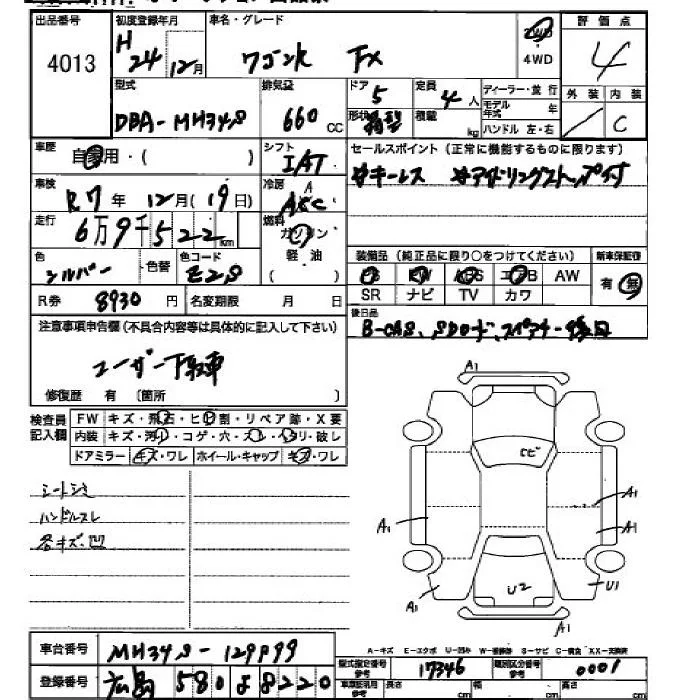 出品番号 初度登録年月 車名・グレード 評価点
4013 H 24年 12月 ワゴンR FX 2WD 4WD 4
型式 排気量 ドア 定員 ディーラー・並行 外装 内装
DBA-MH34S 660 CC 5 4人 モデル年式 年 C
形状 箱型 積載 kg ハンドル 左・右
車歴 自家用・( ) シフト IAT セールスポイント (正常に機能するものに限ります)
車検 R7年 12月(19日) 冷房 AAC #キーレス #アイドリングストップ付
走行 6万9千522km 燃料 ガソリン
色 シルバー 色替 色コード Z2S 軽油 ( ) 装備品 (純正品に限り○をつけてください) 新車保証書
PS PW ABS エアB AW 有・無
R券 8930円 名変期限 月 日 SR ナビ TV カワ
後日品
注意事項申告欄 (不具合内容等は具体的に記入して下さい) B-CAS、SDカード、スペアキー後日
ユーザー下取車
修復歴 有 〔箇所 〕
A1
検査員記入欄 FW キズ・飛石・ヒビ割・リペア跡・X要
内装 キズ・汚れ・コゲ・穴・スレ・ヘタリ・破レ
ドアミラー キズ・ワレ ホイール・キャップ キズ・ワレ
ヒビ
シートシミ
A1
ハンドルスレ
A1 A1
各キズ・凹
U2 U1
A1 A1
車台番号 A-キズ E-エクボ U-凹み W-補修跡 S-サビ C-腐食 XX-交換済
型式指定番号 参考 17346 類別区分番号 参考 0001
登録番号 広島 580 よ 8220 車庫証明用 参考 長さ cm 幅 cm 高さ cm